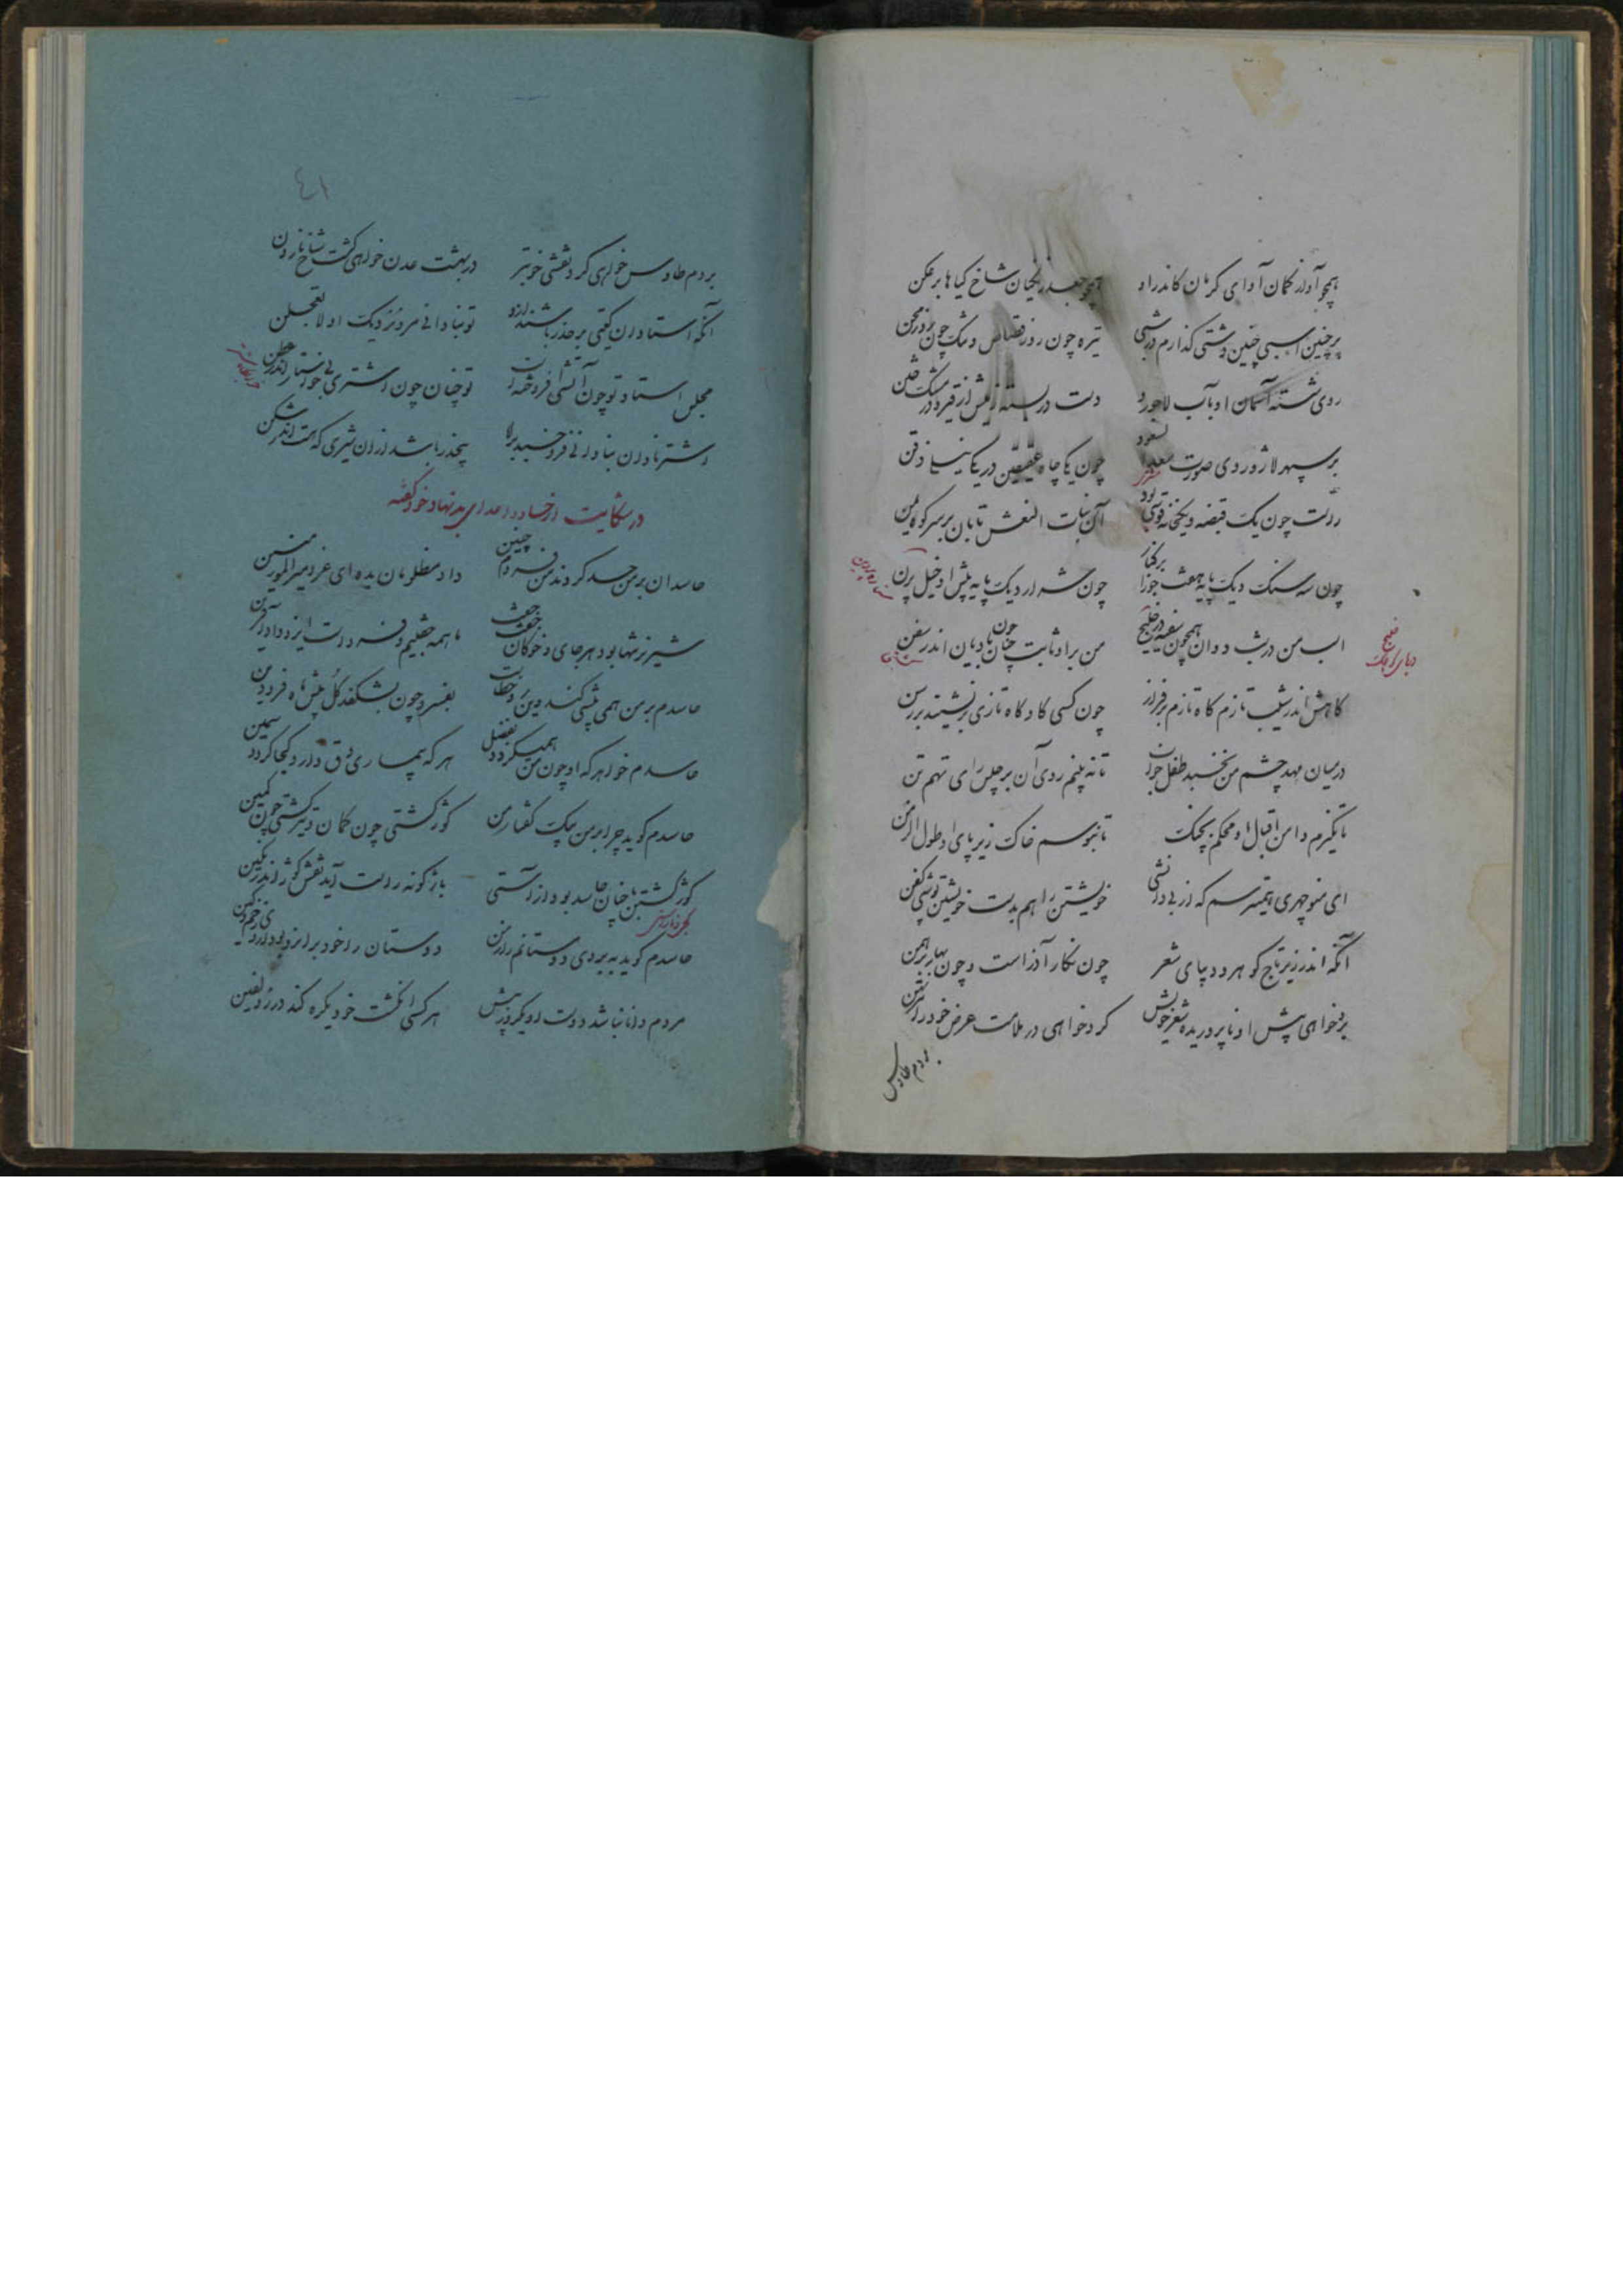 همچو آواز کمان آوای کرکان کاندر او همچو جعد زنکیان شاخ کیاها بر عکن
بر چنین اسبی چنین دشتی کذارم در شبی تیره چون روز قصاص و تنک چون روز محن
روی شسته آسمان او بآب لاجورد دست در بسته زمینش از قیر و در مشک ختن
بر سپهر لاژوردی صورت سعد السعود چون یکی چاه عقیقین در یکی نیلی ذقن
راست چون یک قبضه و یکخانه قوسی بود آن بنات النعش تابان بر سر کوه یمن
چون سه سنک دیک پایه هقعه جوزا برکنار چون شرار دیک پایه پیش او خیل پرن
اسب من در شب دوان همچون سفینه در خلیج من بر او ثابت چنان چون بادبان اندر سفن
خلیج
دریای کوچک
کاهش اندر شیب تازم کاه تازم بر فراز چون کسی کاو کاه تازی بر نشیند بر رسن
در میان مهد چشم من نخسبد طفل خواب تا نه بینم روی آن برجیس رای تهم تن
تا نکیرم دامن اقبال او محکم بچنک تا نبوسم خاک زیر پای او طول الزمن
ای منوچهری همیترسم که از بی دانشی خویشتن را هم بدست خویشتن دوزی کفن
آنکه اندر زیر تاج کوهر و دیبای شعر چون نکار آذر است و چون بهار برهمن
بر نخواهی پیش او نا پروریده شعر خویش کرد خواهی در ملامت عرض خود را مرتهن
بر دم طاوس
٤١
بر دم طاوس خواهی کرد نقشی خوبتر در بهشت عدن خواهی کشت شاخ نارون
آنکه استادان کیتی بر حذر باشند ازو تو بنادانی مرو نزدیک او لا تعجلن
مجلس استاد تو چون آتشی افروخته است تو چنان چون اشتری بی خواستار اندر عطن
اشتر نادان بنادانی فرو خسبد براه بیخبر باشد از آن شیری که هست اندر شکن
در شکایت از حساد و اعدای بد نهاد خود کفته
حاسدان بر من حسد کردند من فردم چنین داد مظلومان بده ای عز میر المؤمنین
شیر نر تنها بود هر جای و خوکان جفت جفت ما همه جفتیم و فرد است ایزد داد آفرین
حاسدم بر من همی پیشی کند وین زو خطاست بفسرد چون بشکفد کل پیش ماه فرودین
حاسدم خواهد که او چون من همیکردد بفضل هر که بیماری دق دارد کجا کردد سمین
حاسدم کوید چرا بر من بیک کفتار من کوژ کشتی چون کمان و تیر کشتی چون کمین
کوژ کشتن با چنان حاسد بود از راستی باژکونه راست آید نقش کوژ اندر نکین
حاسدم کوید ببردی دوستانم را ز من دوستان را خود براند او بود
مردم دانا نباشد دوست او یکروز بیش هر کسی انکشت خود یکره کند در زولفین